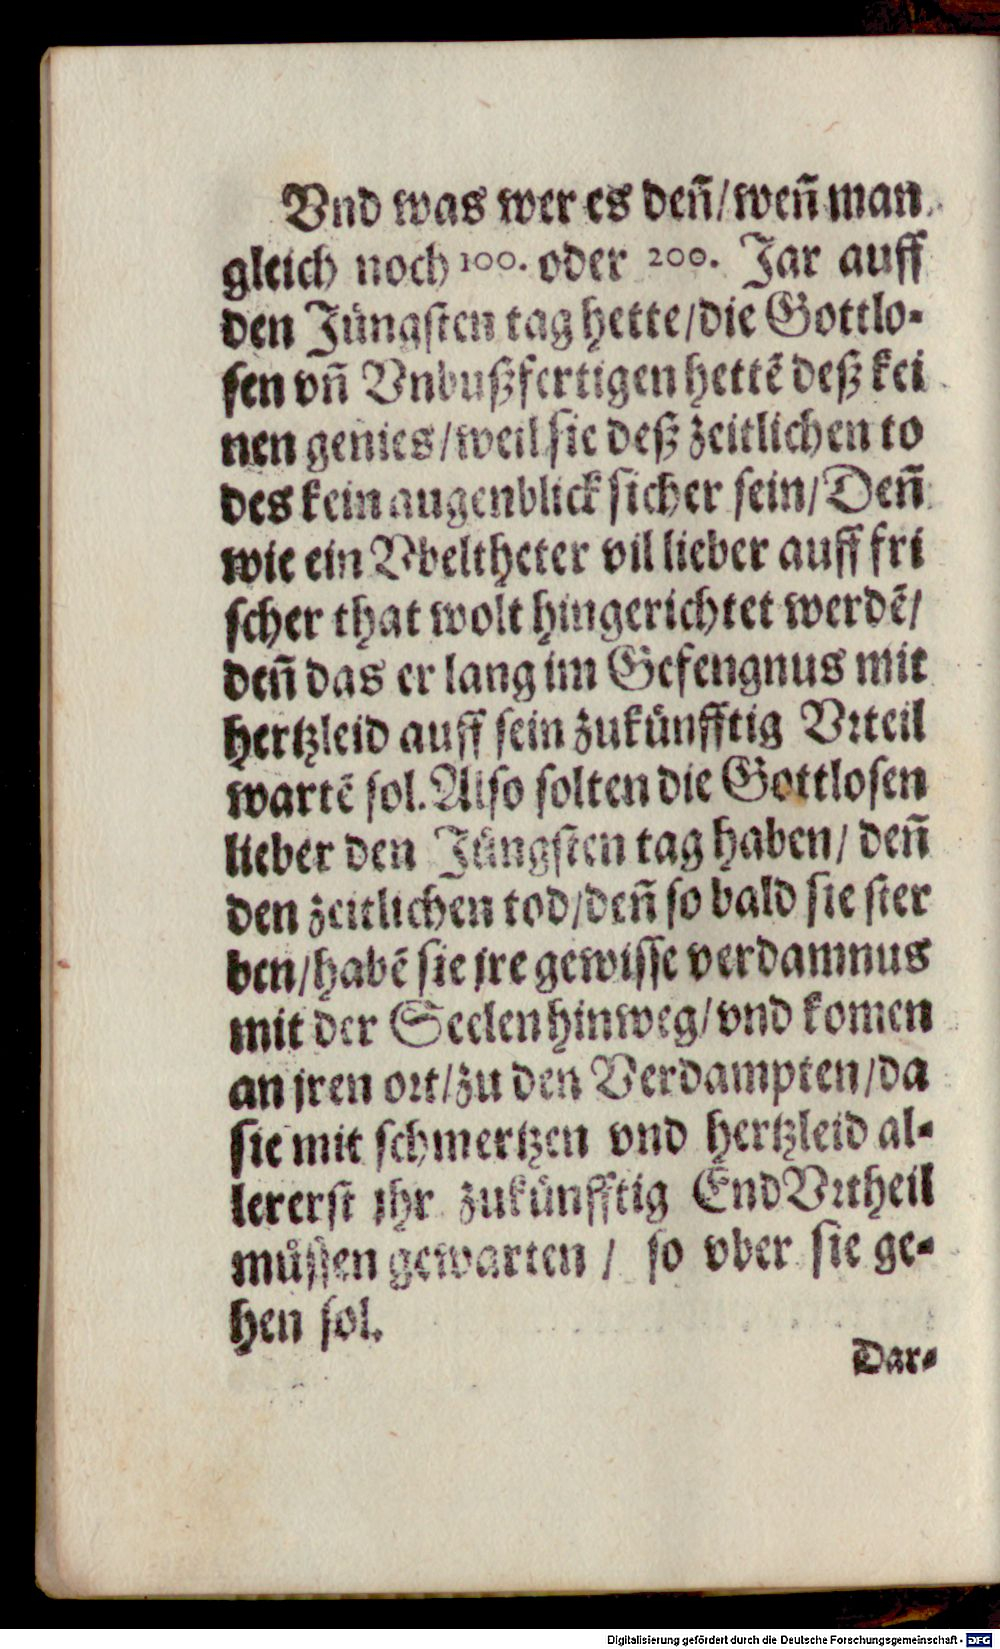 Vnd was wer es deñ/ weñ man
gleich noch 100. oder 200. Jar auff
den Jüngsten tag hette/die Gottlo-
sen vñ Vnbußfertigen hettẽ deß kei
nen genies/weil sie deß zeitlichen to
des kein augenblick sicher sein/ Deñ
wie ein Vbeltheter vil lieber auff fri
scher that wolt hingerichtet werdẽ/
deñ das er lang im Gefengnus mit
hertzleid auff sein zukünfftig Vrteil
wartẽ sol. Also solten die Gottlosen
lieber den Jüngsten tag haben/ deñ
den zeitlichen tod/deñ so bald sie ster
ben/habẽ sie jre gewisse verdamnus
mit der Seelen hinweg/ vnd komen
an jren ort/zu den Verdampten/da
sie mit schmertzen vnd hertzleid al-
lererst jhr zukünfftig EndVrtheil
müssen gewarten / so vber sie ge-
hen sol.
Dar-
Digitalisierung gefördert durch die Deutsche Forschungsgemeinschaft - DFG